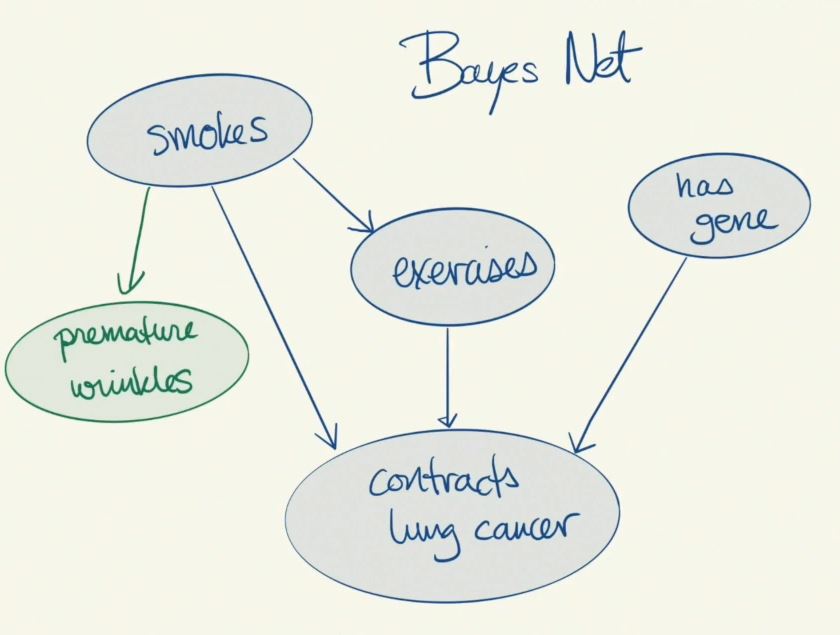 Bayes Net
smokes
has
gene
exercises
premature
wrinkles
contracts
lung cancer